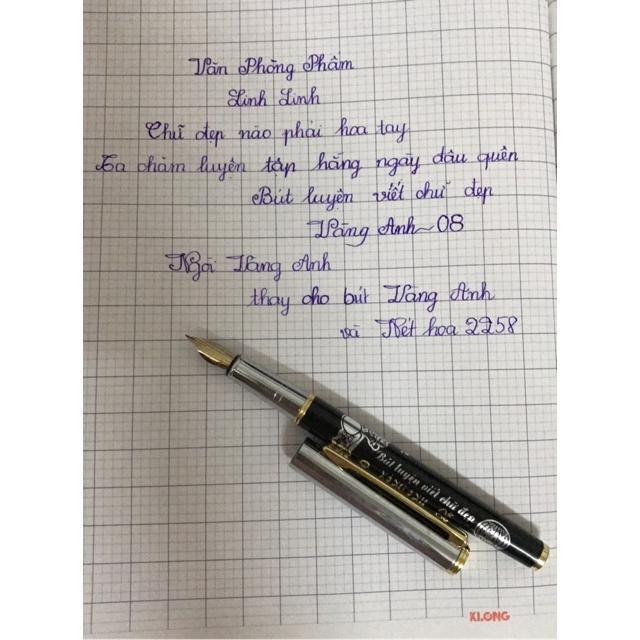 Văn Phòng Phẩm
Linh Linh
Chữ đẹp nào phải hoa tay
Ta chăm luyện tập hằng ngày dâu quên
Bút luyện viết chữ đẹp
Vàng Anh~08
Ngòi Vàng Anh
thay cho bút Vàng Anh
và Nét hoa 2258
Bút luyện viết chữ đẹp
KLONG